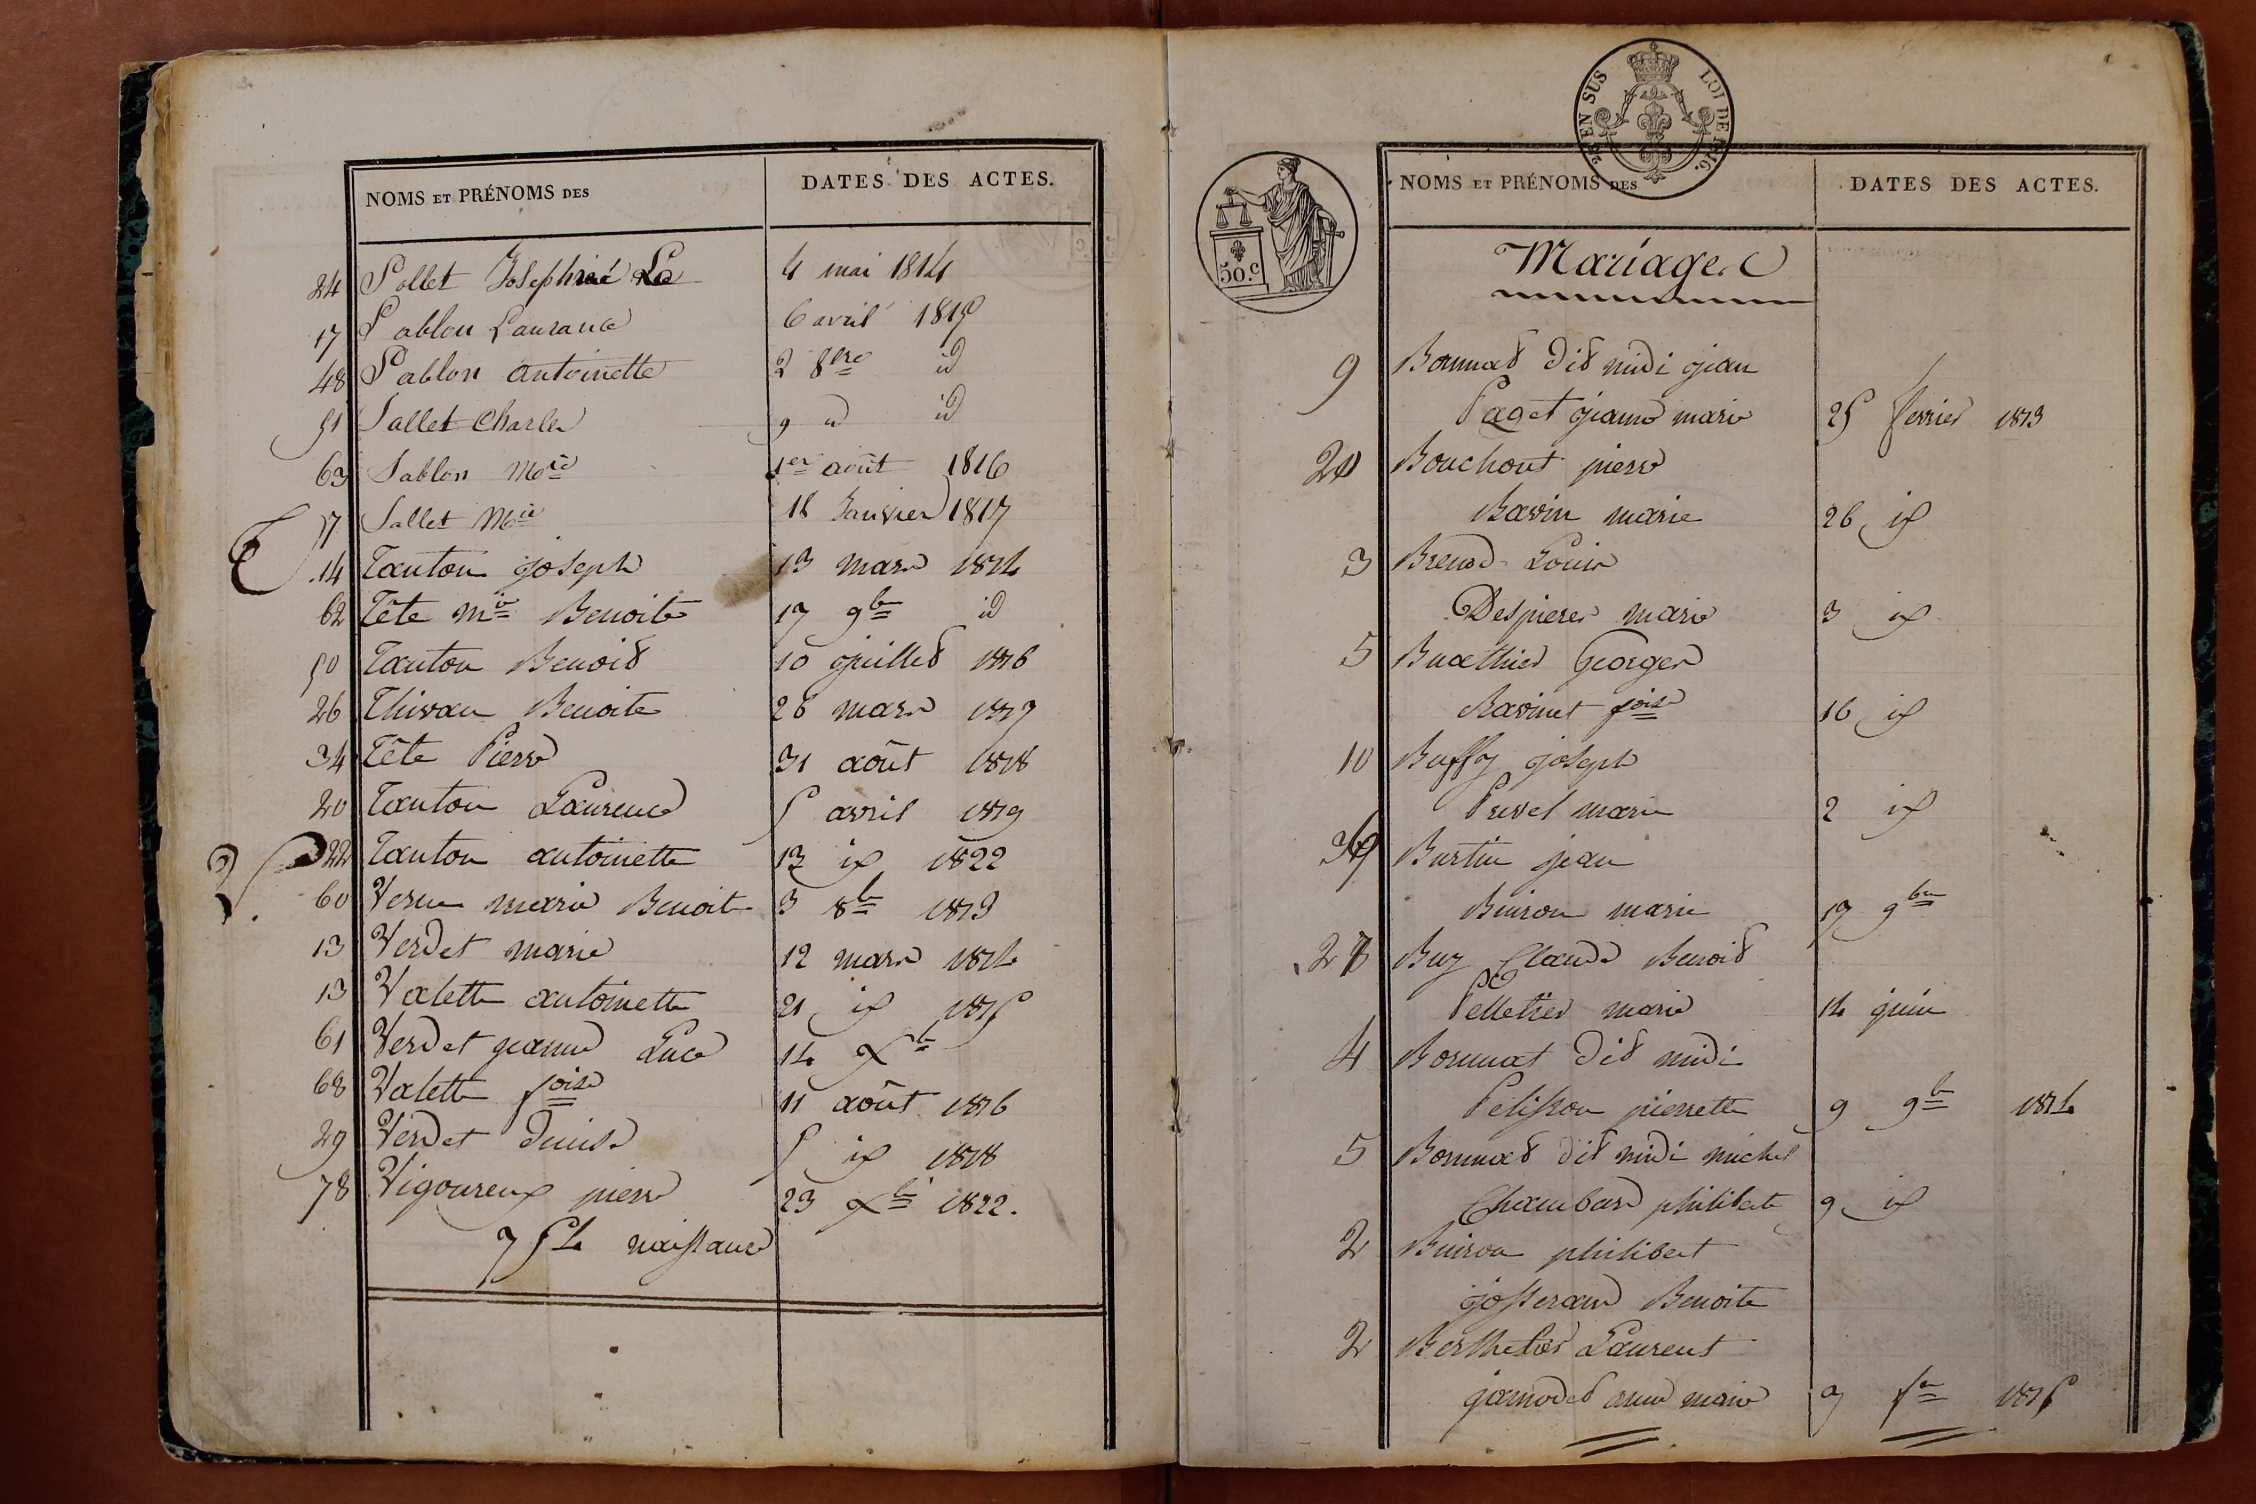 NOMS ET PRÉNOMS DES DATES DES ACTES.
24 Sollet Josephine 4 mai 1814
17 Sablon Laurance 6 avril 1815
48 Sablon Antoinette 2 8bre id
51 Sallet Charles 9 id id
63 Sablon Mrie 1er août 1816
57 Sallet Mrie 18 Janvier 1817
T
14 Tanton joseph 13 mars 1814
62 Tête Mie Benoite 17 9bre id
50 Tanton Benoit 10 juillet 1816
26 Thivan Benoite 28 mars 1817
34 Tête Pierre 31 août 1818
20 Tanton Laurence 5 avril 1819
22 Tanton antoinette 13 id 1822
V.
60 Verne marie Benoite 3 8bre 1813
13 Verdet marie 12 mars 1814
13 Valette antoinette 21 id 1815
61 Verdet jeanne Luce 14 Xbre
68 Valette foise 11 août 1816
29 Verdet Denise 5 id 1818
78 Vigoureux pierre 23 Xbre 1822.
754 naissance
25 EN SUS LOI DE 1816.
50.c
NOMS ET PRÉNOMS DES DATES DES ACTES.
Mariages
9 Bonnat dit midi jean
Paget jeanne marie 25 fevrier 1813
Bouchout pierre
Bavin marie 26 id
3 Brenod Louis
Despieres marie 3 id
5 Buathier Georges
Ravinet foise 16 id
10 Buffy joseph
Privel marie 2 id
Burtin jean
Buiron marie 17 9bre
Buy Claude Benoit
Pelletier marie 14 juin
4 Bonnat dit midi
Pelisson pierrette 9 9bre 1814
5 Bonnat dit midi michel
Chambard philiberte 9 id
2 Buiron philibert
josserand Benoite
2 Berthelier Laurent
anne marie 9 1815